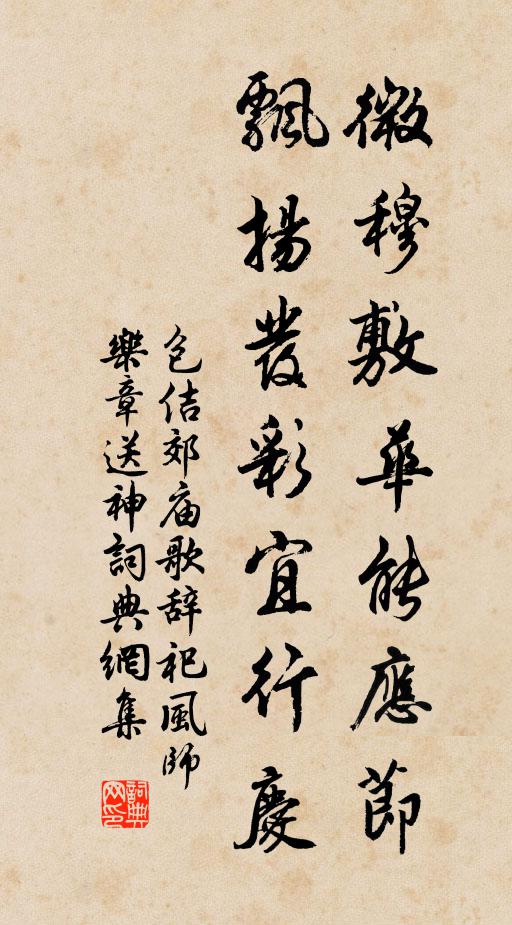 微穆敷華能應節
飄揚發彩宜行慶
包佶郊庙歌辞祀風师
樂章送神詞典網集
詞典网印